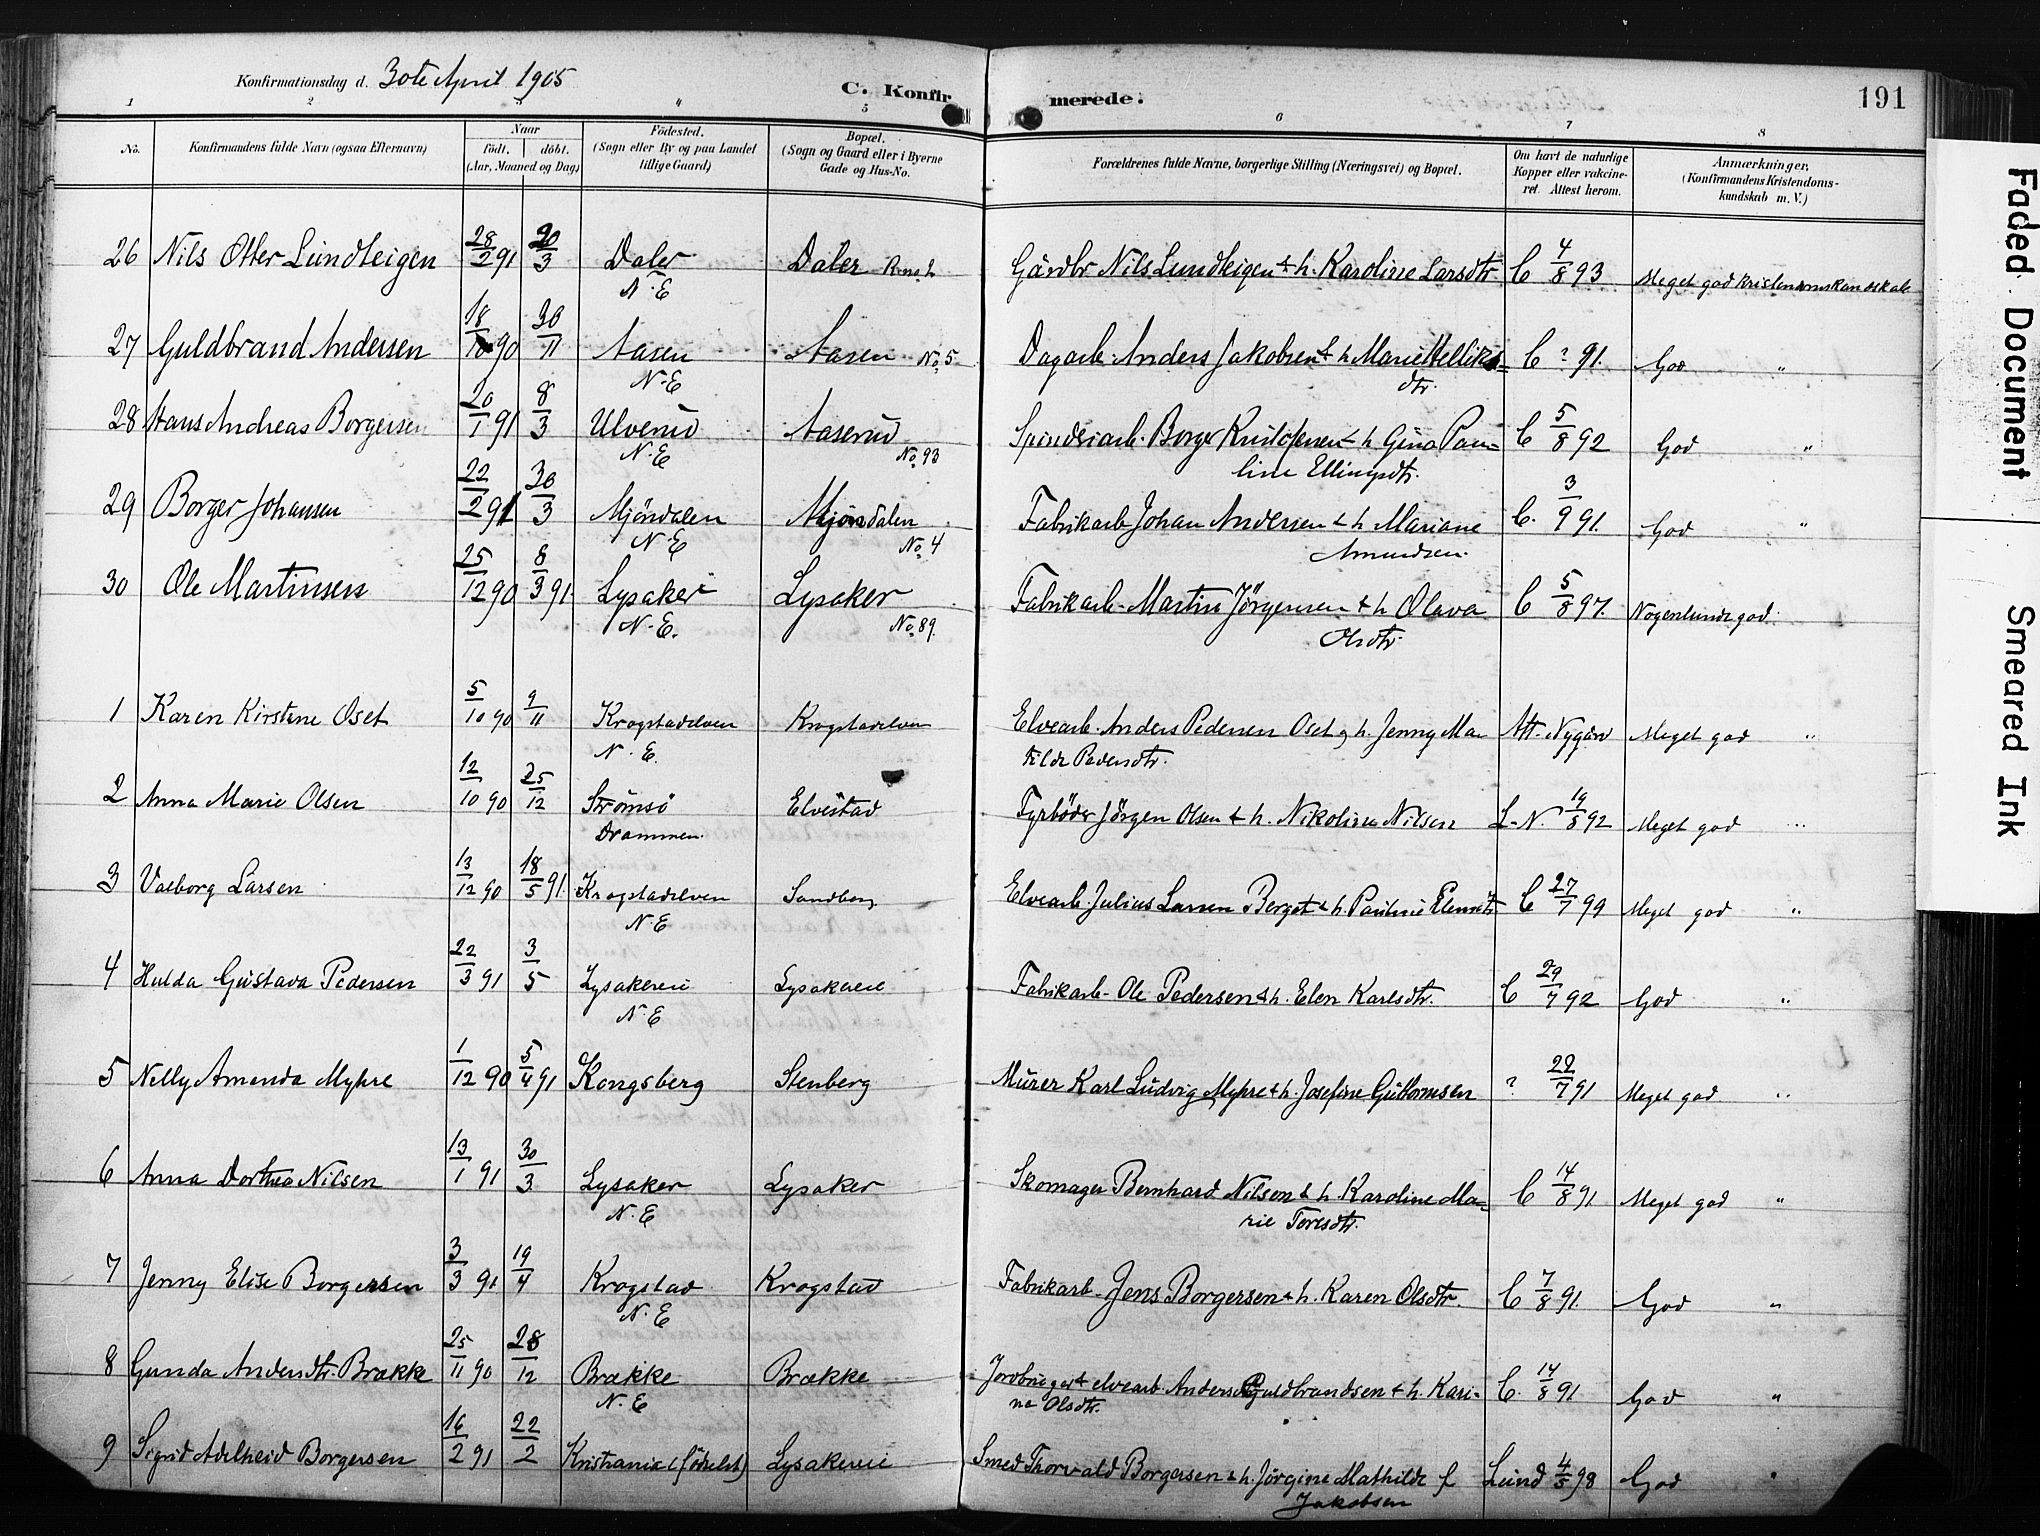 Konfirmationsdag d. 30te April 1905
C. Konfirmerede.
191
1 2 " " 5 6 7 8
No.
Konfirmandens fulde Navn (ogsaa Efternavn)
Naar
födt. döbt.
(Aar, Maaned og Dag)
Födested.
(Sogn eller By og paa Landet tillige Gaard)
Bopæl.
(Sogn og Gaard eller i Byerne Gade og Hus-No.
Forældrenes fulde Navne, borgerlige Stilling (Næringsvei) og Bopæl.
Om havt de naturlige Kopper eller vakcineret. Attest herom.
Anmærkninger.
(Konfirmandens Kristendomskundskab m. V.)
26 Nils Otter Lundteigen 28/2 91 20/3 Daler N.E Daler Gårdbr Nils Lundteigen & h. Karoline Larsdtr C 4/8 93 Meget god kristendomskundskab
27 Guldbrand Andersen 18/10 90 30/11 Aasen N.E Aasen No. 5 Dagarb. Anders Jakobsen & h Marie Helliksdtr. C ? 91. God "
28 Hans Andreas Borgersen 20/1 91 8/3 Ulverud N.E Aaserud No. 93 Spinderiarb. Borger Kristofersen & h Gina Pauline Ellingsdtr. C 5/8 92 God "
29 Borger Johansen 22/2 91 30/3 Mjöndalen N.E Mjöndalen No. 4 Fabrikarb Johan Andersen & h Mariane Amundsen. C. 3/9 91. God "
30 Ole Martinsen 25/12 90 8/3 91 Lysaker N.E. Lysaker No. 89. Fabrikarb. Martin Jörgensen & h Olava Olsdtr. C 5/8 97. Nogenlunde god.
1 Karen Kirstine Oset 5/10 90 9/11 Krogstadelven N.E. Krogstadelven Elvearb. Anders Pedersen Oset og h. Jenny Matilde Pedersdtr. Att. Nygård Meget god "
2 Anna Marie Olsen 12/10 90 25/12 Strömsö Drammen. Elvestad Fyrböder Jörgen Olsen & h. Nikoline Nilsen L-N. 19/8 92 Meget god "
3 Valborg Larsen 13/12 90 18/5 91. Krogstadelven N E Sandberg Elvearb. Julius Larsen Berget & h. Pauline C 27/7 99 Meget god "
4 Hulda Gustava Pedersen 22/3 91 3/5 Lysakereie N E Lysakereie Fabrikarb. Ole Pedersen & h. Elen Karlsdtr. C 29/7 92 God "
5 Nelly Amanda Myhre 1/12 90 5/4 91 Kongsberg Stenberg Murer Karl Ludvig Myhre & h. Josefine Guttormsen ? 22/7 91 Meget god "
6 Anna Dorthea Nilsen 13/1 91 30/3 Lysaker N.E Lysaker Skomager Bernhard Nilsen & h. Karoline Marie Toresdtr. C 14/8 91 Meget god "
7 Jenny Elise Borgersen 3/3 91 19/4 Krogstad N.E Krogstad Fabrikarb. Jens Borgersen & h. Karen Olsdtr. C 7/8 91. God "
8 Gunda Andersdtr. Brække 25/11 90 28/12 Brække N.E Brække Jordbruger & elvearb. Anders Guldbrandsen & h. Karina Olsdtr. C. 14/8 91 God "
9 Sigrid Adelheid Borgersen 16/2 91 22/2 Kristiania (födselst) Lysakereie Smed Thorvald Borgersen & h. Jörgine Mathilde f Jakobsen Lund 4/5 98 God "
Faded Document Smeared Ink